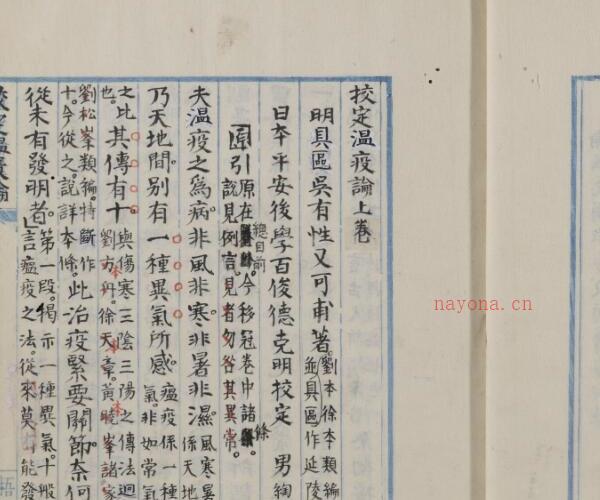 校定温疫論上巻
明具區吳有性又可甫著 劉本徐本類編
並具區作延陵
日本平安後學百俊德克明校定 男絢
圊引 原在總目前今移冠卷中諸條
說見例言見者勿咎其異常
夫温疫之為病非風非寒非暑非濕 風寒暑
係天地
乃天地間別有一種異氣所感 瘟疫係一種
氣非如常氣
之比
也 其傳有十 與傷寒三陰三陽之傳法迥
劉方舟徐天章黃曉峯諸家
劉松峯類編特斷作
十今從之說詳本條 此治疫緊要關節奈何
從未有發明者 第一段揭示一種異氣十般
言瘟疫之法從來莫能發
校定温疫論
nayona.cn